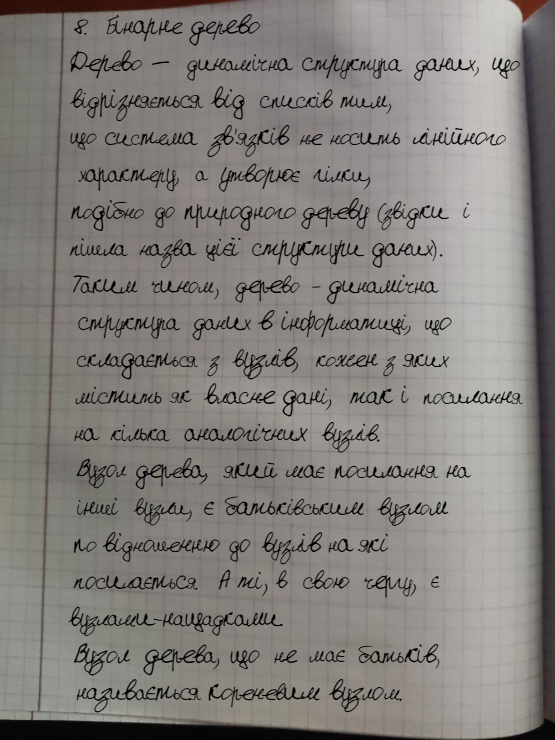 8. Бінарне дерево
Дерево — динамічна структура даних, що
відрізняється від списків тим,
що система зв'язків не носить лінійного
характеру, а утворює гілки,
подібно до природного дереву (звідки і
пішла назва цієї структури даних).
Таким чином, дерево – динамічна
структура даних в інформатиці, що
складається з вузлів, кожен з яких
містить як власне дані, так і посилання
на кілька аналогічних вузлів.
Вузол дерева, який має посилання на
інші вузли, є батьківським вузлом
по відношенню до вузлів на які
посилається. А ті, в свою чергу, є
вузлами-нащадками.
Вузол дерева, що не має батьків,
називається кореневим вузлом.